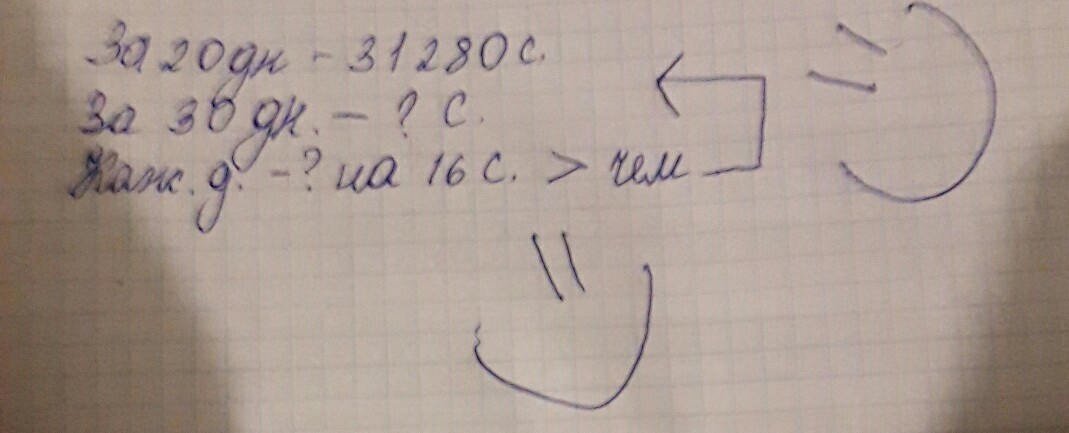 За 20 дн - 31280 с.
За 30 дн. - ? с.
Кажс. д. - ? на 16 с. > чем